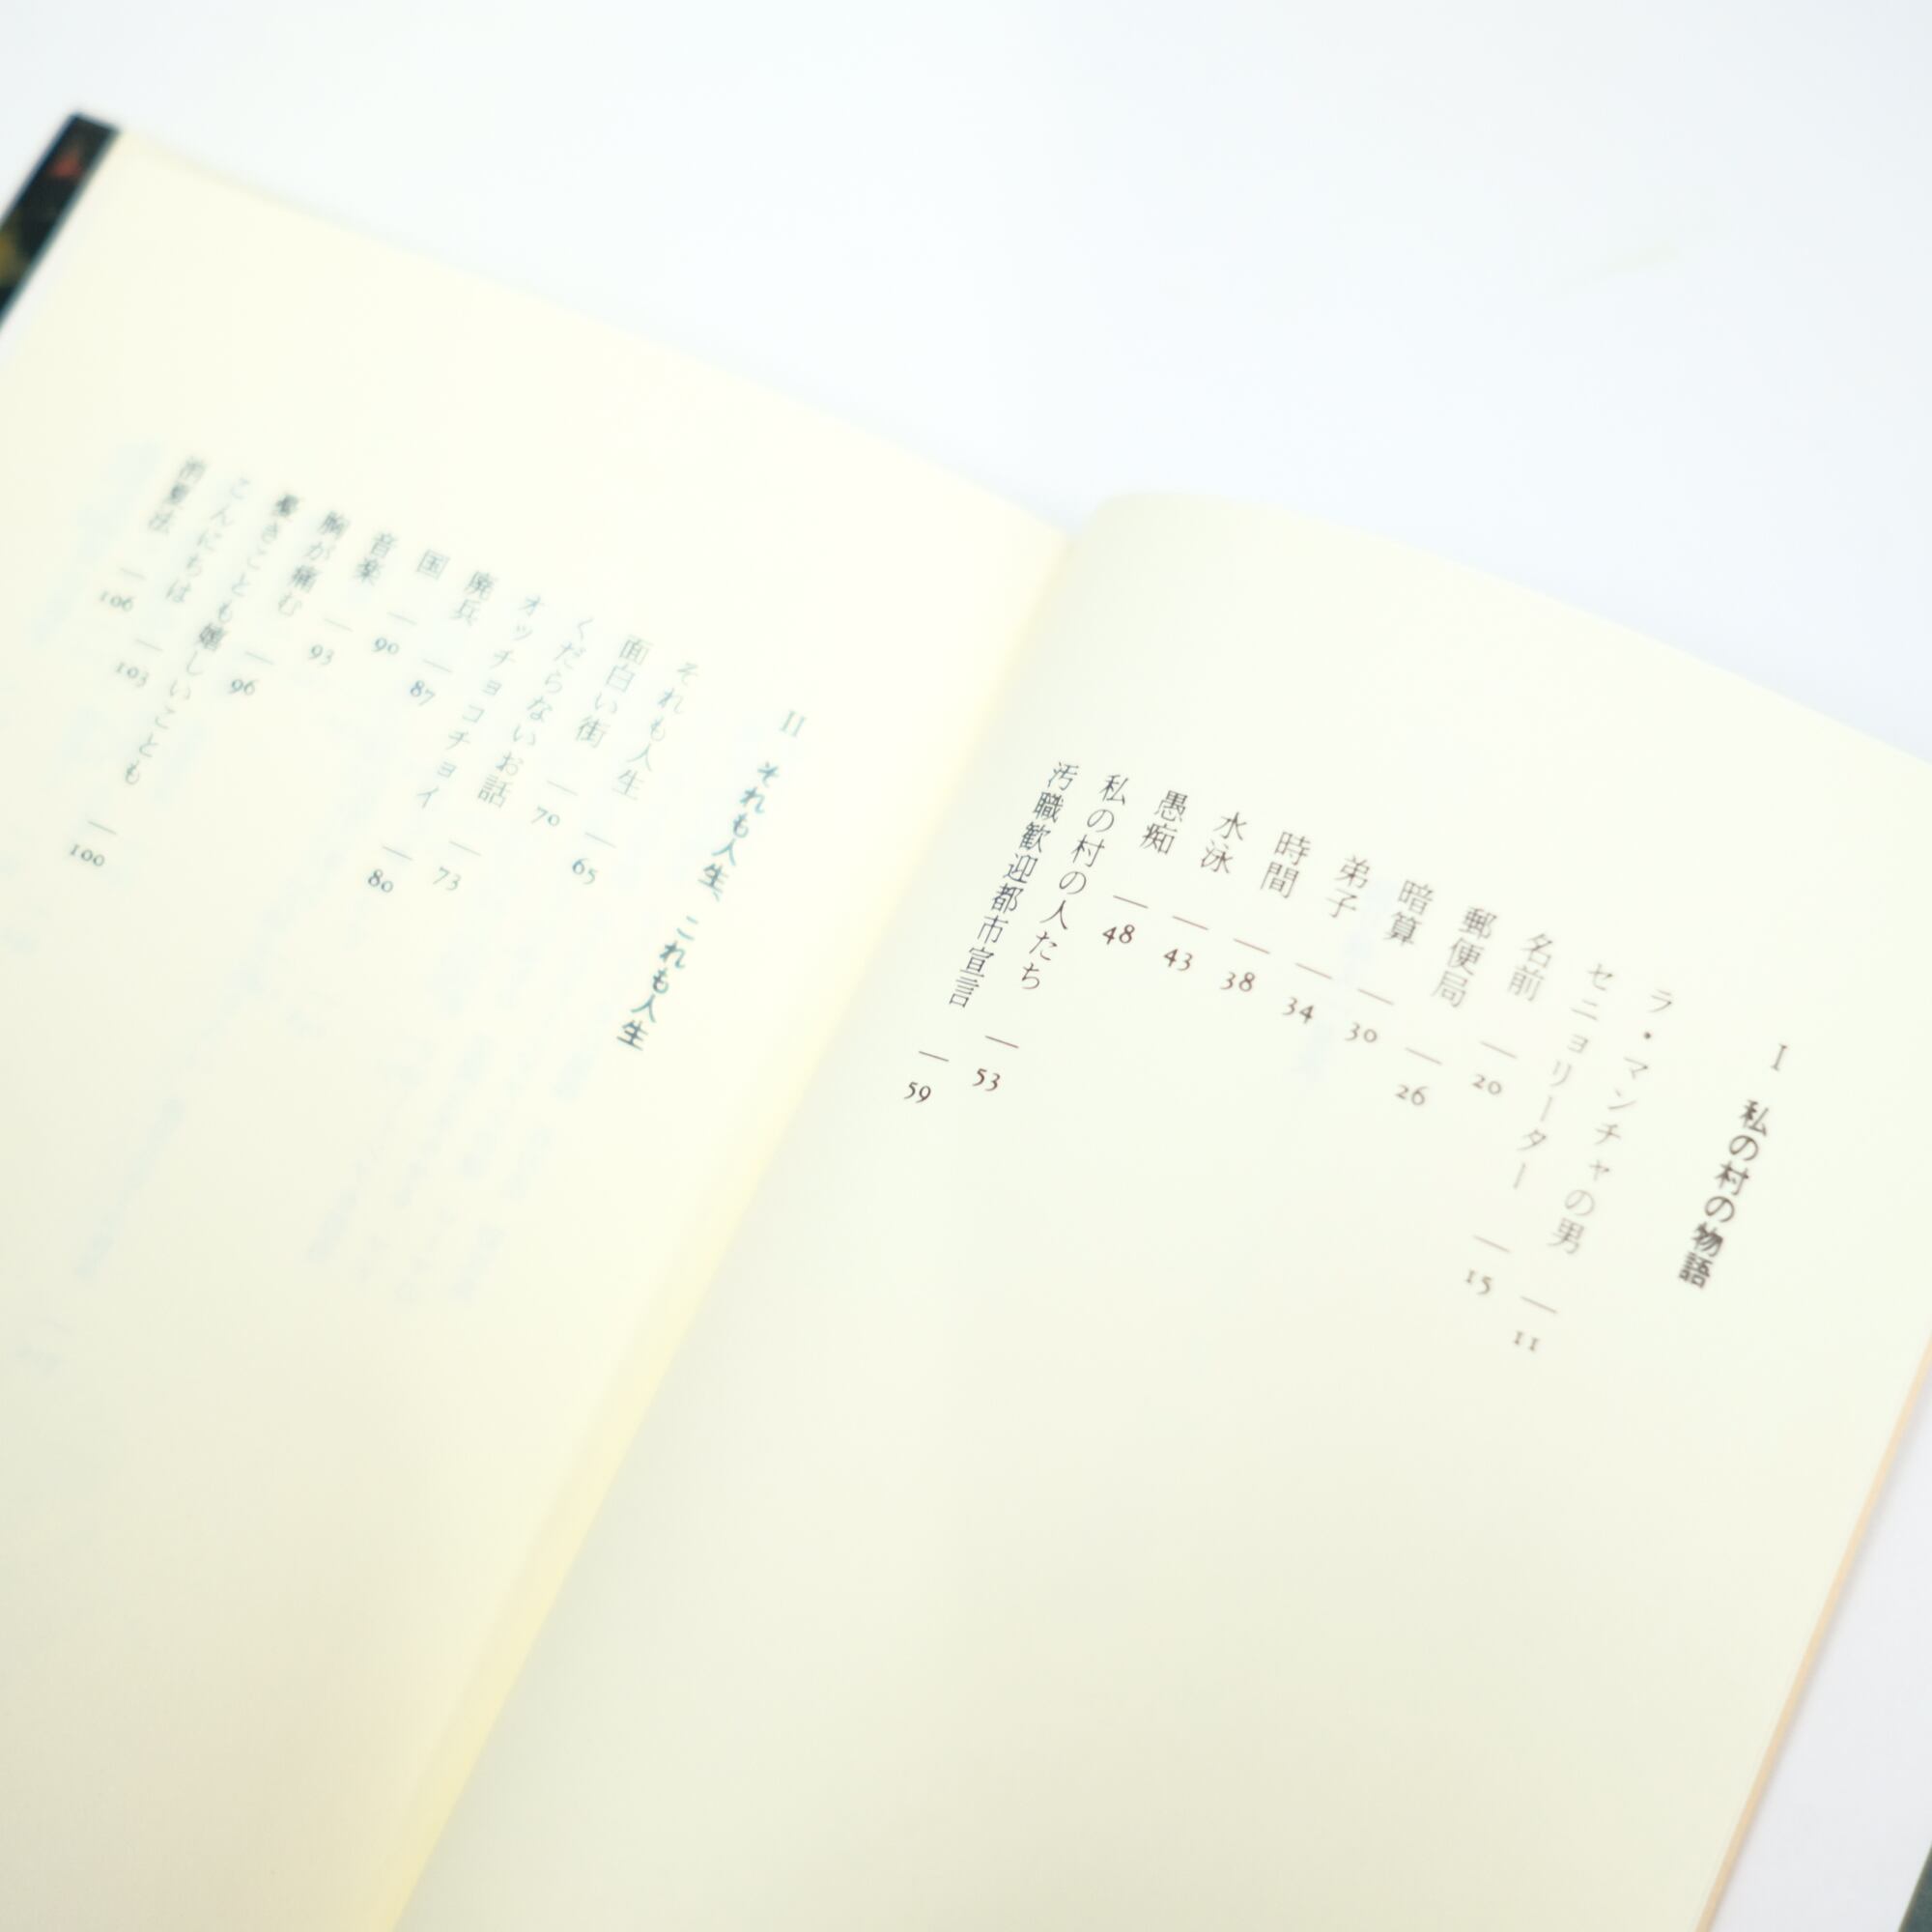 I 私の村の物語
ラ・マンチャの男 — 11
セニョリーター — 15
名前 — 20
郵便局 — 26
暗算 — 30
弟子 — 34
時間 — 38
水泳 — 43
愚痴 — 48
私の村の人たち — 53
汚職歓迎都市宣言 — 59
II それも人生、これも人生
それも人生 — 65
面白い街 — 70
くだらないお話 — 73
オッチョコチョイ — 80
廃兵 — 87
国 — 90
音楽 — 93
胸が痛む — 96
憂きことも嬉しいことも — 100
こんにちは — 103
消夏法 — 106